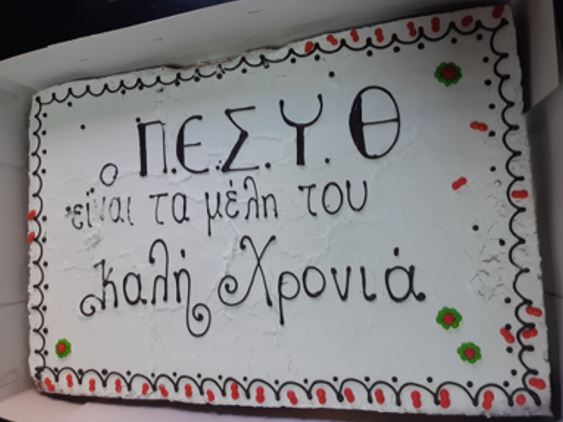 ο Π.Ε.Σ.Υ.Θ
είναι τα μέλη του
καλή Χρονιά